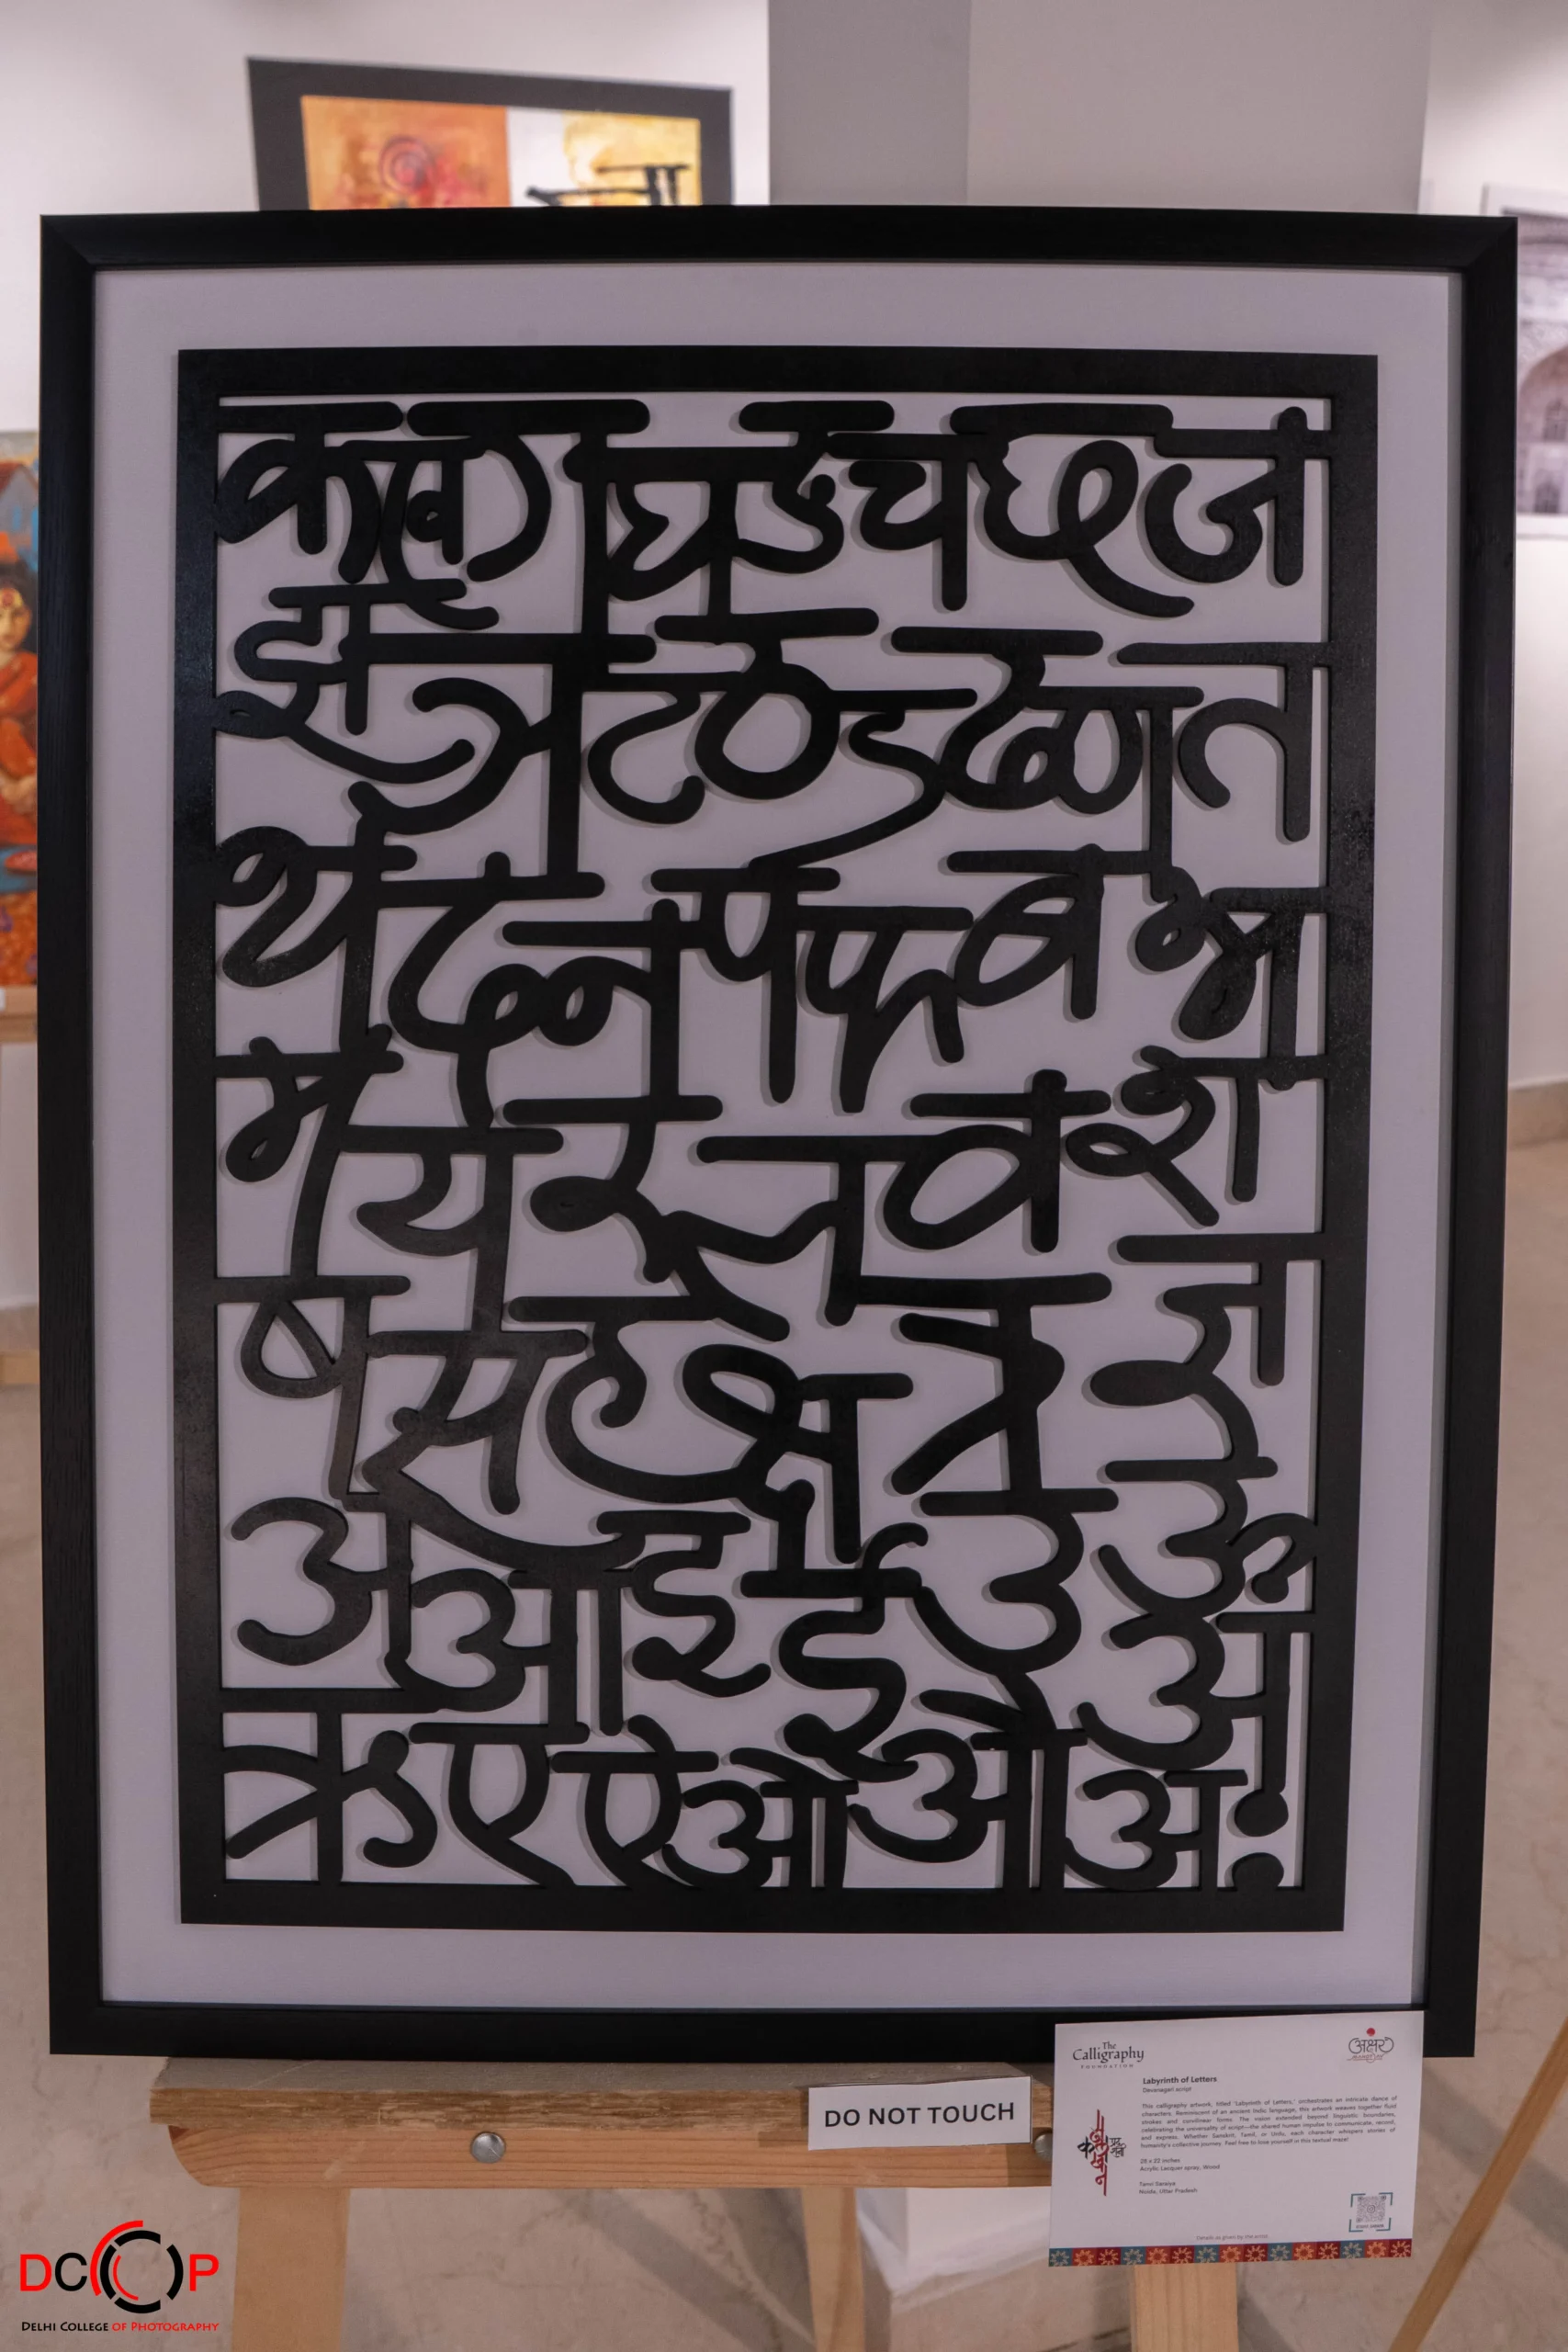 क ख ग घ ङ च छ ज
झ ञ ट ठ ड ढ ण त
थ द न प फ ब भ
म य र ल व श
ष स ह क्ष त्र ज्ञ
अ आ इ ई उ ऊ
ऋ ए ऐ ओ औ अं अः
DO NOT TOUCH
The
Calligraphy
FOUNDATION
अक्षर
Labyrinth of Letters
Devanagari script
This calligraphy artwork, titled 'Labyrinth of Letters,' orchestrates an intricate dance of
characters. Reminiscent of an ancient Indic language, this artwork weaves together fluid
strokes and curvilinear forms. The vision extended beyond linguistic boundaries,
celebrating the universality of script—the shared human impulse to communicate, record,
and express. Whether Sanskrit, Tamil, or Urdu, each character whispers stories of
humanity's collective journey. Feel free to lose yourself in this textual maze!
28 x 22 inches
Acrylic Lacquer spray, Wood
Noida, Uttar Pradesh
Details as given by the artist
DCOP
DELHI COLLEGE OF PHOTOGRAPHY